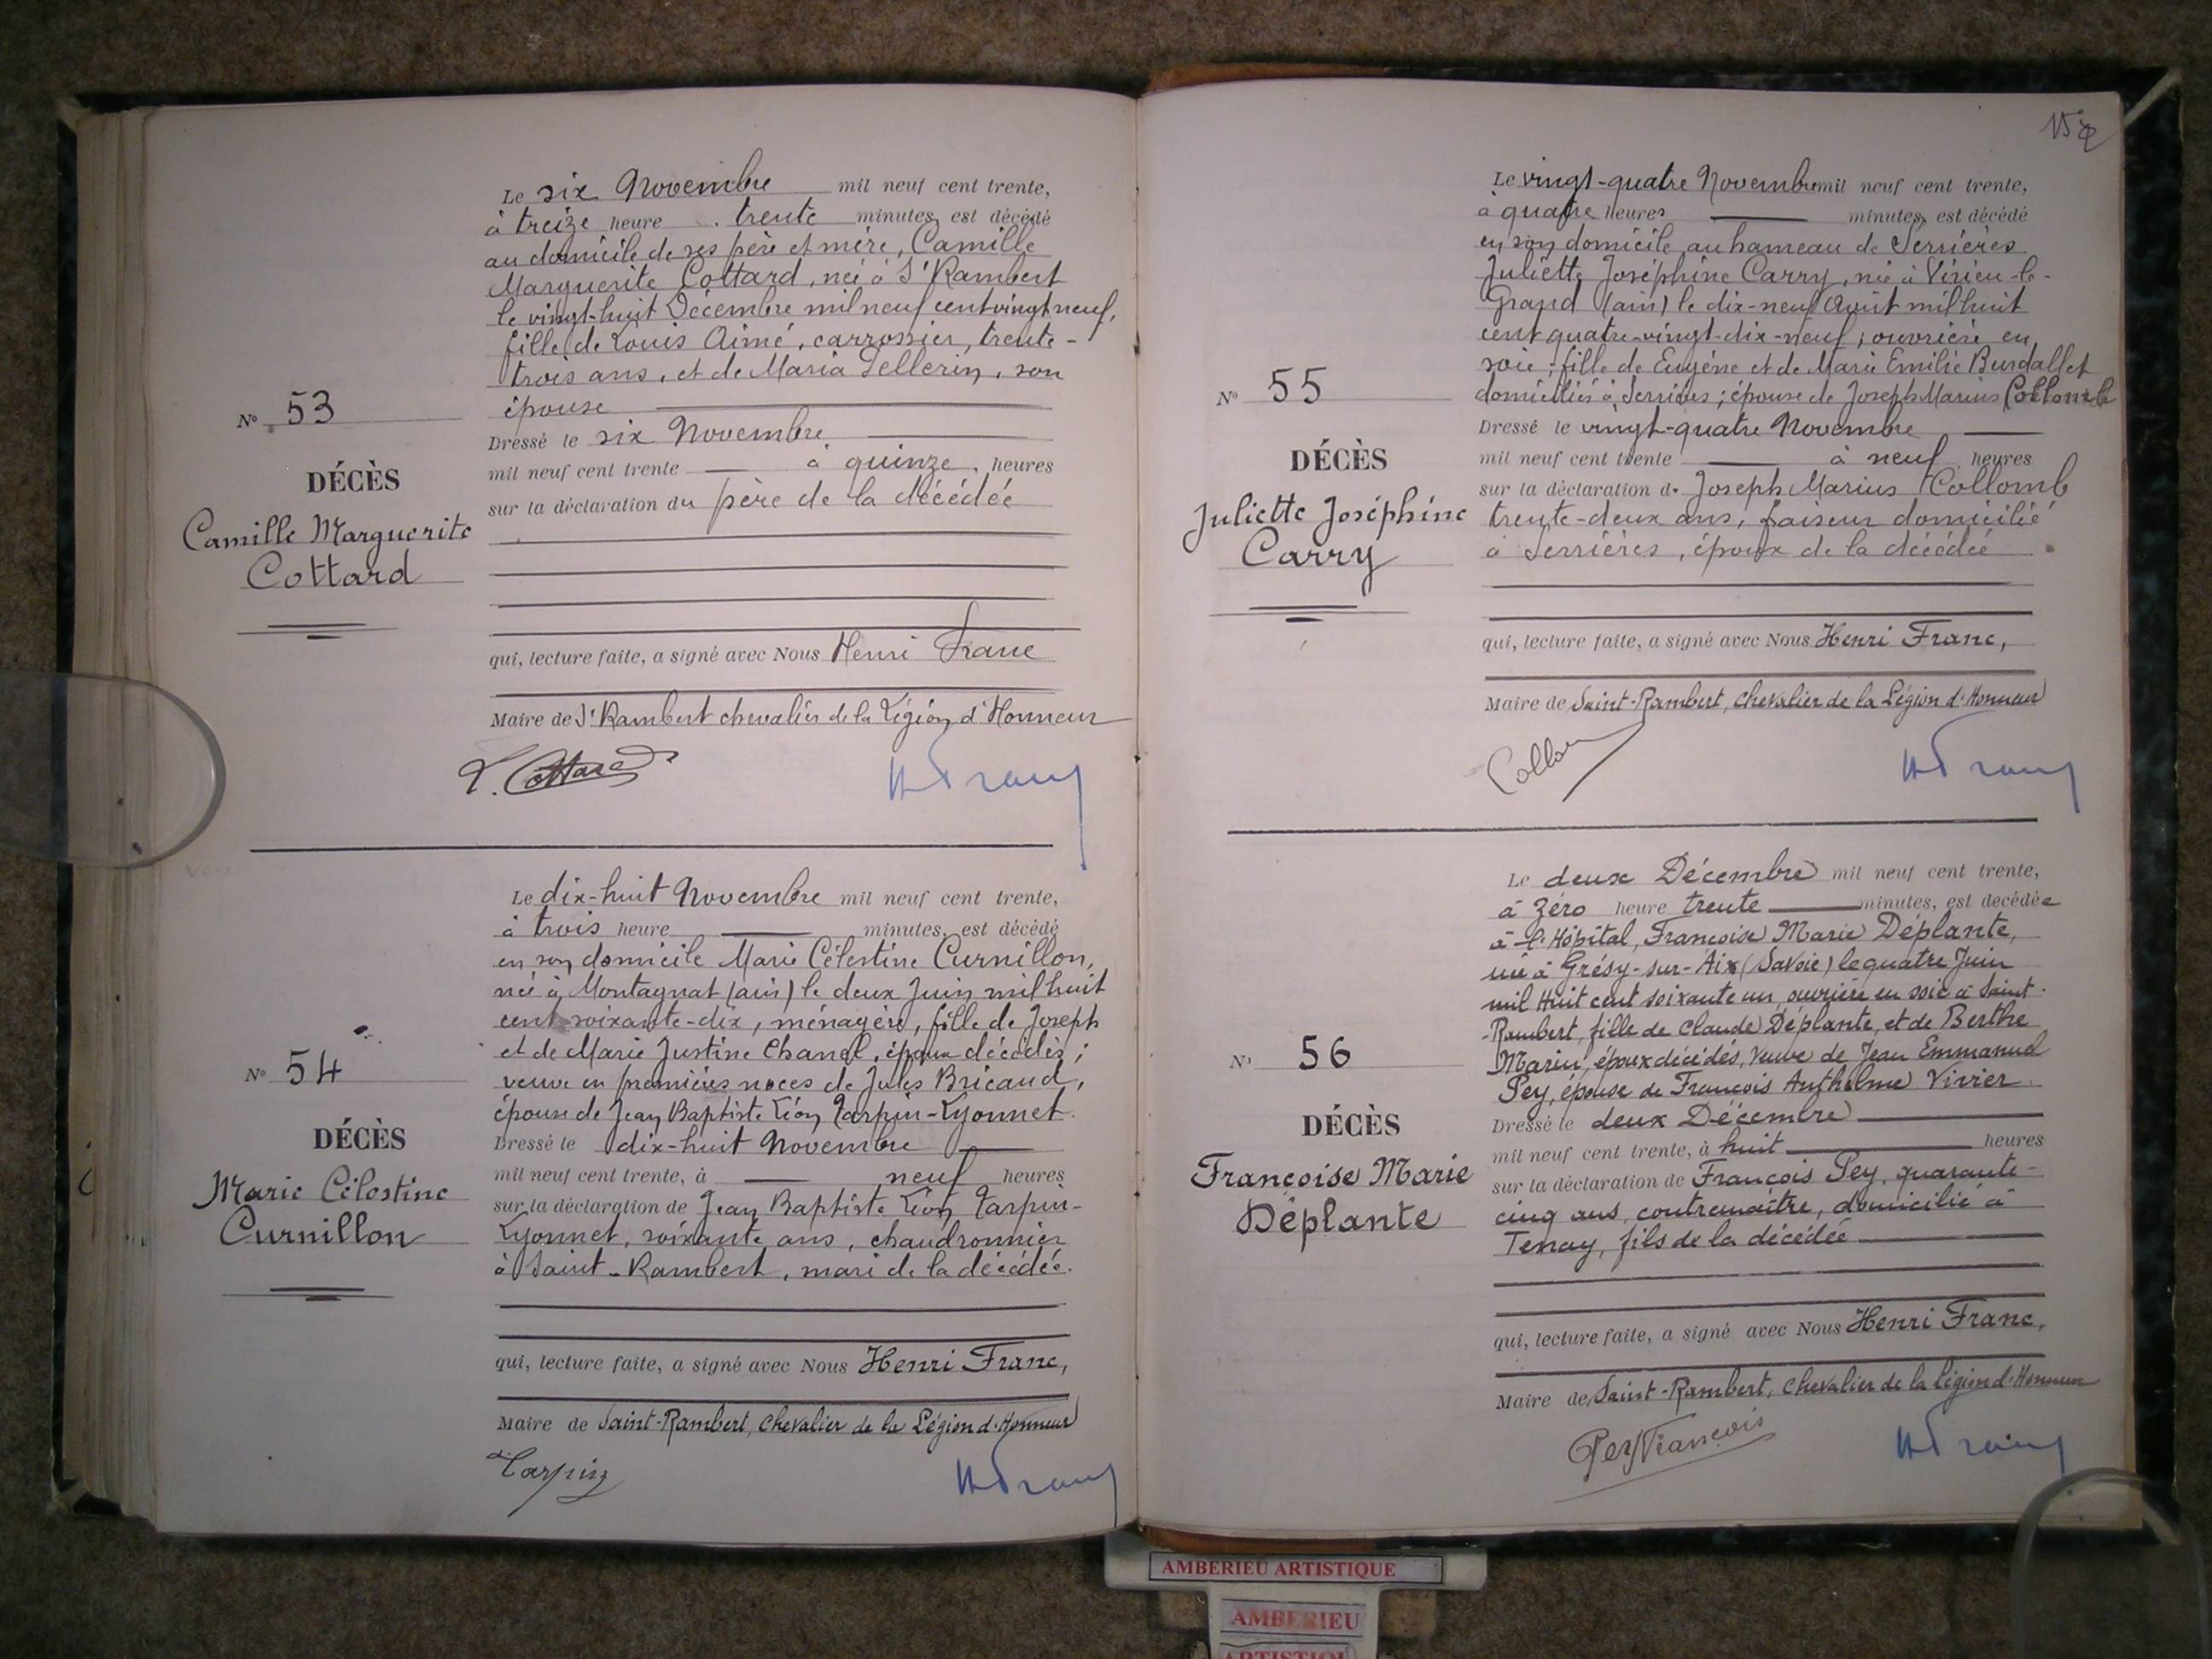 Le six Novembre mil neuf cent trente,
à treize heure trente minutes, est décédé
au domicile de ses père et mère, Camille
Marguerite Cottard, née à St Rambert
le vingt-huit Décembre mil neuf cent vingt neuf,
fille de Louis Aimé, carrossier, trente-
trois ans, et de Maria Pellerin, son
épouse
No 53
Dressé le six Novembre
mil neuf cent trente à quinze, heures
DÉCÈS
sur la déclaration du père de la décédée
Camille Marguerite
Cottard
qui, lecture faite, a signé avec Nous Henri Franc
Maire de St Rambert chevalier de la Légion d'Honneur
L. Cottard
HFranc
Le dix-huit Novembre mil neuf cent trente,
à trois heure minutes, est décédé
en son domicile Marie Célestine Curnillon,
née à Montagnat (ain) le deux Juin mil huit
cent soixante-dix, ménagère, fille de Joseph
et de Marie Justine Chanel, époux décédés;
veuve en premières noces de Jules Bricaud,
épouse de Jean Baptiste Léon Tarpin-Lyonnet.
No 54
DÉCÈS
Dressé le dix-huit Novembre
mil neuf cent trente, à neuf heures
Marie Célestine
Curnillon
sur la déclaration de Jean Baptiste Léon Tarpin-
Lyonnet, soixante ans, chaudronnier
à Saint-Rambert, mari de la décédée.
qui, lecture faite, a signé avec Nous Henri Franc,
Maire de Saint-Rambert, Chevalier de la Légion d'Honneur
Tarpin
HFranc
152
Le vingt-quatre Novembre mil neuf cent trente,
à quatre heures minutes, est décédé
en son domicile au hameau de Serrières
Juliette Joséphine Carry, née à Virieu-le-
Grand (ain) le dix-neuf Août mil huit
cent quatre-vingt-dix-neuf; ouvrière en
soie; fille de Eugène et de Marie Emilie Burdallet
domiciliés à Serrières; épouse de Joseph Marius Collomb
No 55
Dressé le vingt-quatre Novembre
mil neuf cent trente à neuf heures
DÉCÈS
sur la déclaration de Joseph Marius Collomb
Juliette Joséphine
Carry
trente-deux ans, faiseur domicilié
à Serrières, époux de la décédée
qui, lecture faite, a signé avec Nous Henri Franc,
Maire de Saint-Rambert, Chevalier de la Légion d'Honneur
HFranc
Le deux Décembre mil neuf cent trente,
à zéro heure trente minutes, est décédée
à l'Hôpital, Françoise Marie Déplante,
née à Grésy-sur-Aix (Savoie) le quatre Juin
mil Huit cent soixante un, ouvrière en soie à Saint-
-Rambert, fille de Claude Déplante, et de Berthe
Marin, époux décédés, Veuve de Jean Emmanuel
Pey, épouse de François Anthelme Vivier.
No 56
DÉCÈS
Dressé le deux Décembre
mil neuf cent trente, à huit heures
Françoise Marie
Déplante
sur la déclaration de François Pey, quarante-
cinq ans, contremaître, domicilié à
Tenay, fils de la décédée
qui, lecture faite, a signé avec Nous Henri Franc,
Maire de Saint-Rambert, Chevalier de la Légion d'Honneur
Pey François
HFranc
AMBERIEU ARTISTIQUE
AMBERIEU
ARTISTIQU